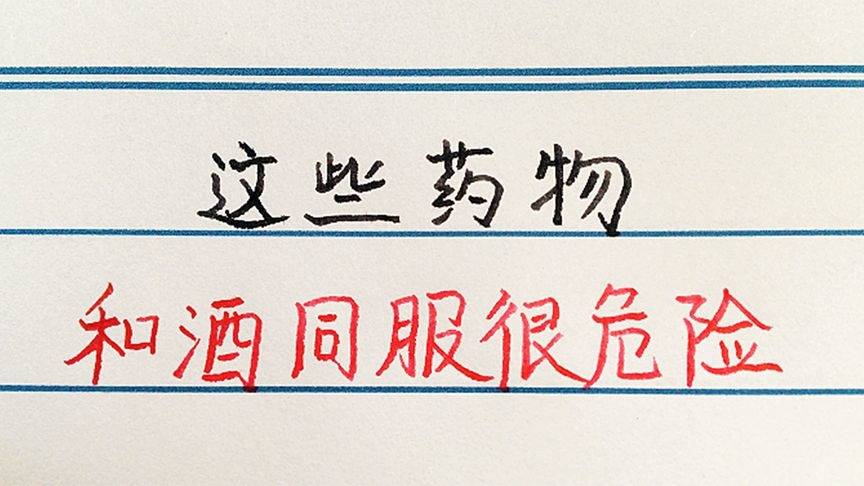 这些药物
和酒同服很危险